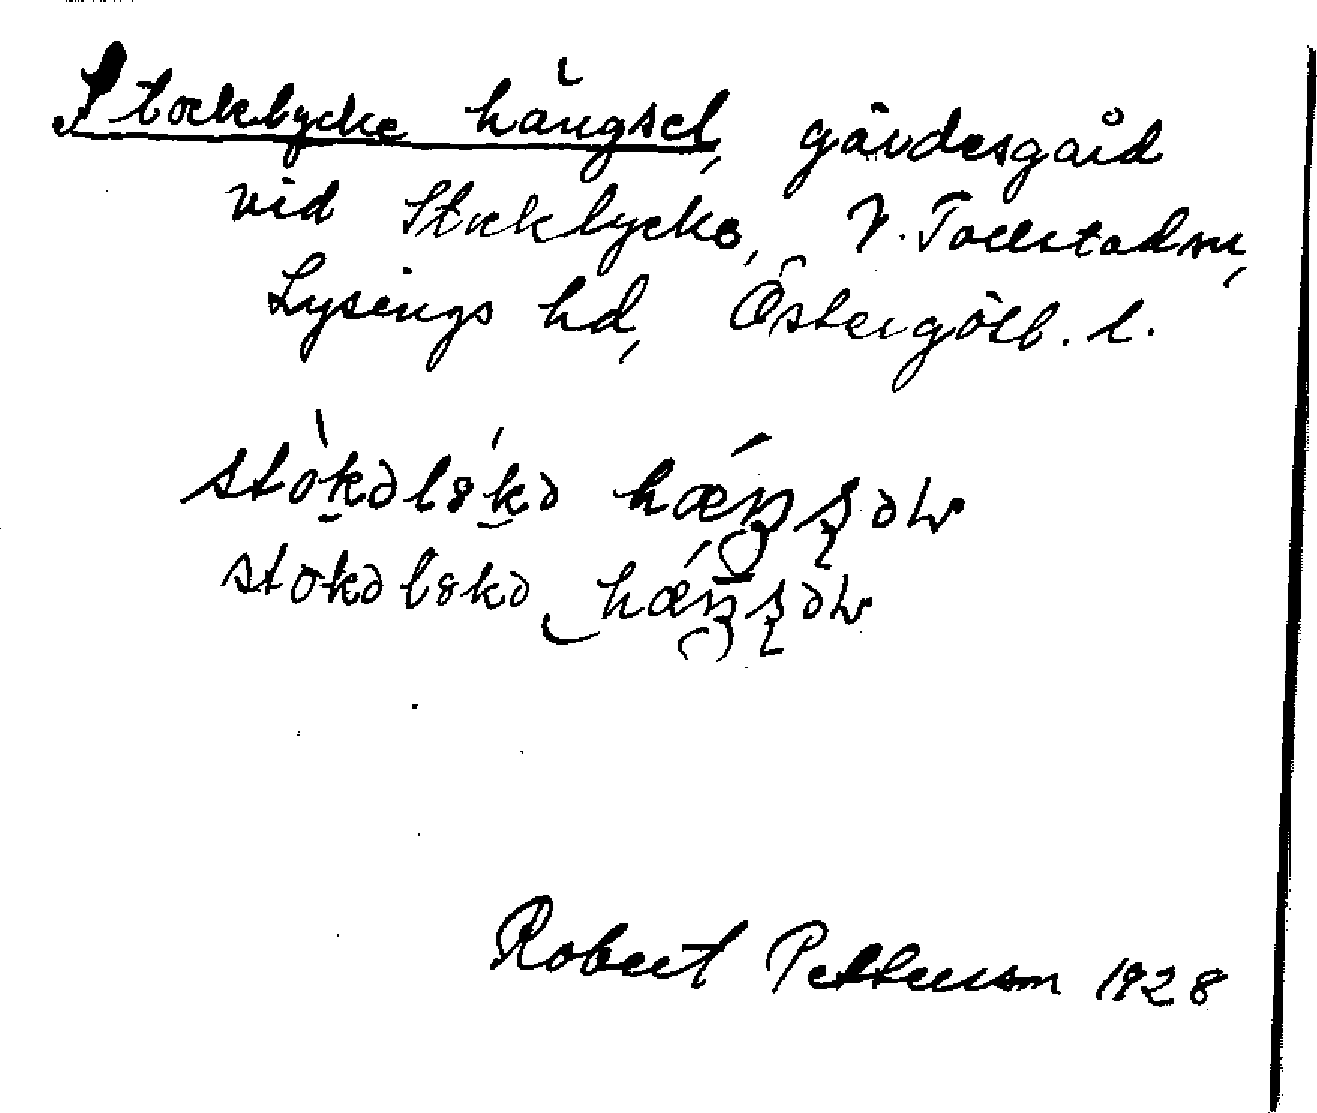 Stocklycke hängsel, gärdesgård
vid Stocklycke, V. Tollstad sn,
Lysings hd, Östergötl. l.
stòkəlýkə hǽŋsəl
stokəlykə hǽŋsəl
Robert Petterson 1928